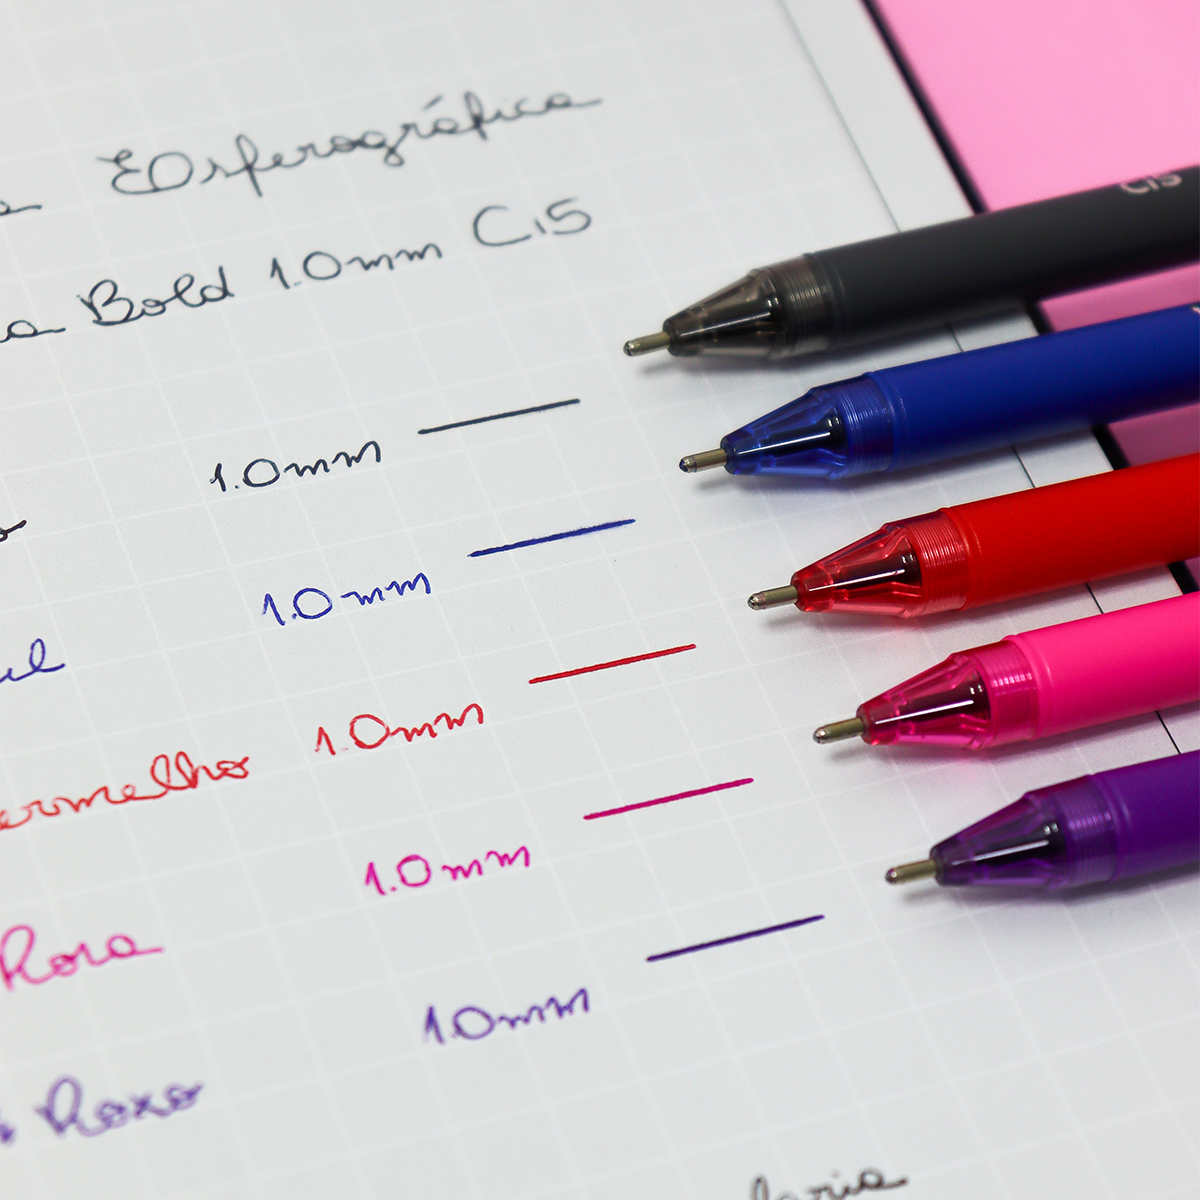 Esferográfica
Bold 1.0mm CiS
1.0mm
1.0mm
ermelho 1.0mm
Rosa 1.0mm
Roxo 1.0mm
laria
CiS